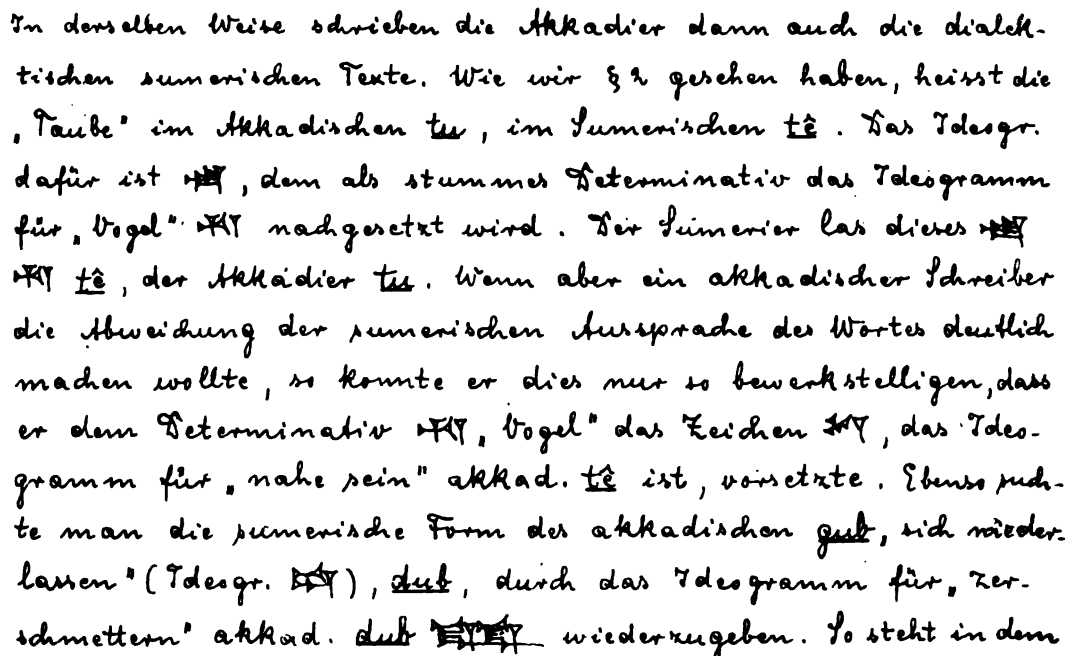 In derselben Weise schrieben die Akkadier dann auch die dialek-
tischen sumerischen Texte. Wie wir § 2 gesehen haben, heisst die
„Taube" im Akkadischen tu, im Sumerischen tê. Das Ideogr.
dafür ist, dem als stummes Determinativ das Ideogramm
für „Vogel" nachgesetzt wird. Der Sumerier las dieses
tê, der Akkadier tu. Wenn aber ein akkadischer Schreiber
die Abweichung der sumerischen Aussprache des Wortes deutlich
machen wollte, so konnte er dies nur so bewerkstelligen, dass
er dem Determinativ „Vogel" das Zeichen, das Ideo-
gramm für „nahe sein" akkad. tê ist, vorsetzte. Ebenso such-
te man die sumerische Form des akkadischen gub, sich nieder-
lassen" (Ideogr.), dub, durch das Ideogramm für „zer-
schmettern" akkad. dub wiederzugeben. So steht in dem